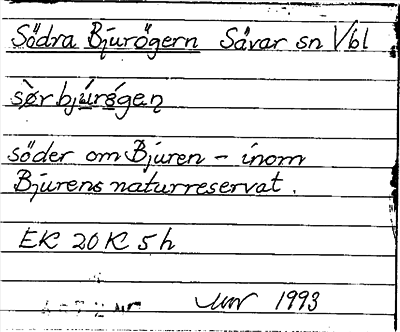 Södra Bjurögern Sävar sn Vbl
sø̀r bjúrǿgen̥
söder om Bjuren – inom
Bjurens naturreservat.
EK 20 K 5 h
1993